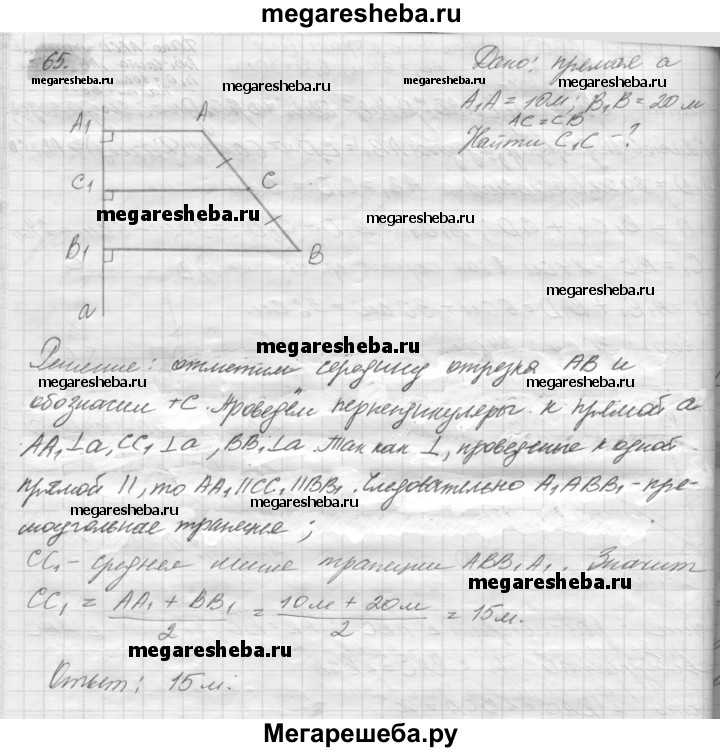 megaresheba.ru
65.
megaresheba.ru
megaresheba.ru
megaresheba.ru
Дано: прямая а
A₁A = 10м; B₁B = 20м
AC = CB
Найти C₁C - ?
A₁ A
C₁ C
megaresheba.ru
megaresheba.ru
B₁ B
megaresheba.ru
а
megaresheba.ru
Решение: отметим середину отрезка AB и
megaresheba.ru
megaresheba.ru
обозначим т C. Проведём перпендикуляры к прямой а
AA₁⊥a, CC₁⊥a, BB₁⊥a. Так как ⊥, проведенные к одной
прямой ||, то AA₁||CC₁||BB₁. Следовательно A₁ABB₁ - пря-
megaresheba.ru
megaresheba.ru
моугольная трапеция;
CC₁ - средняя линия трапеции ABB₁A₁. Значит
megaresheba.ru
CC₁ = AA₁ + BB₁ / 2 = 10м + 20м / 2 = 15м.
megaresheba.ru
megaresheba.ru
Ответ: 15м.
megaresheba.ru
Мегарешеба.ру